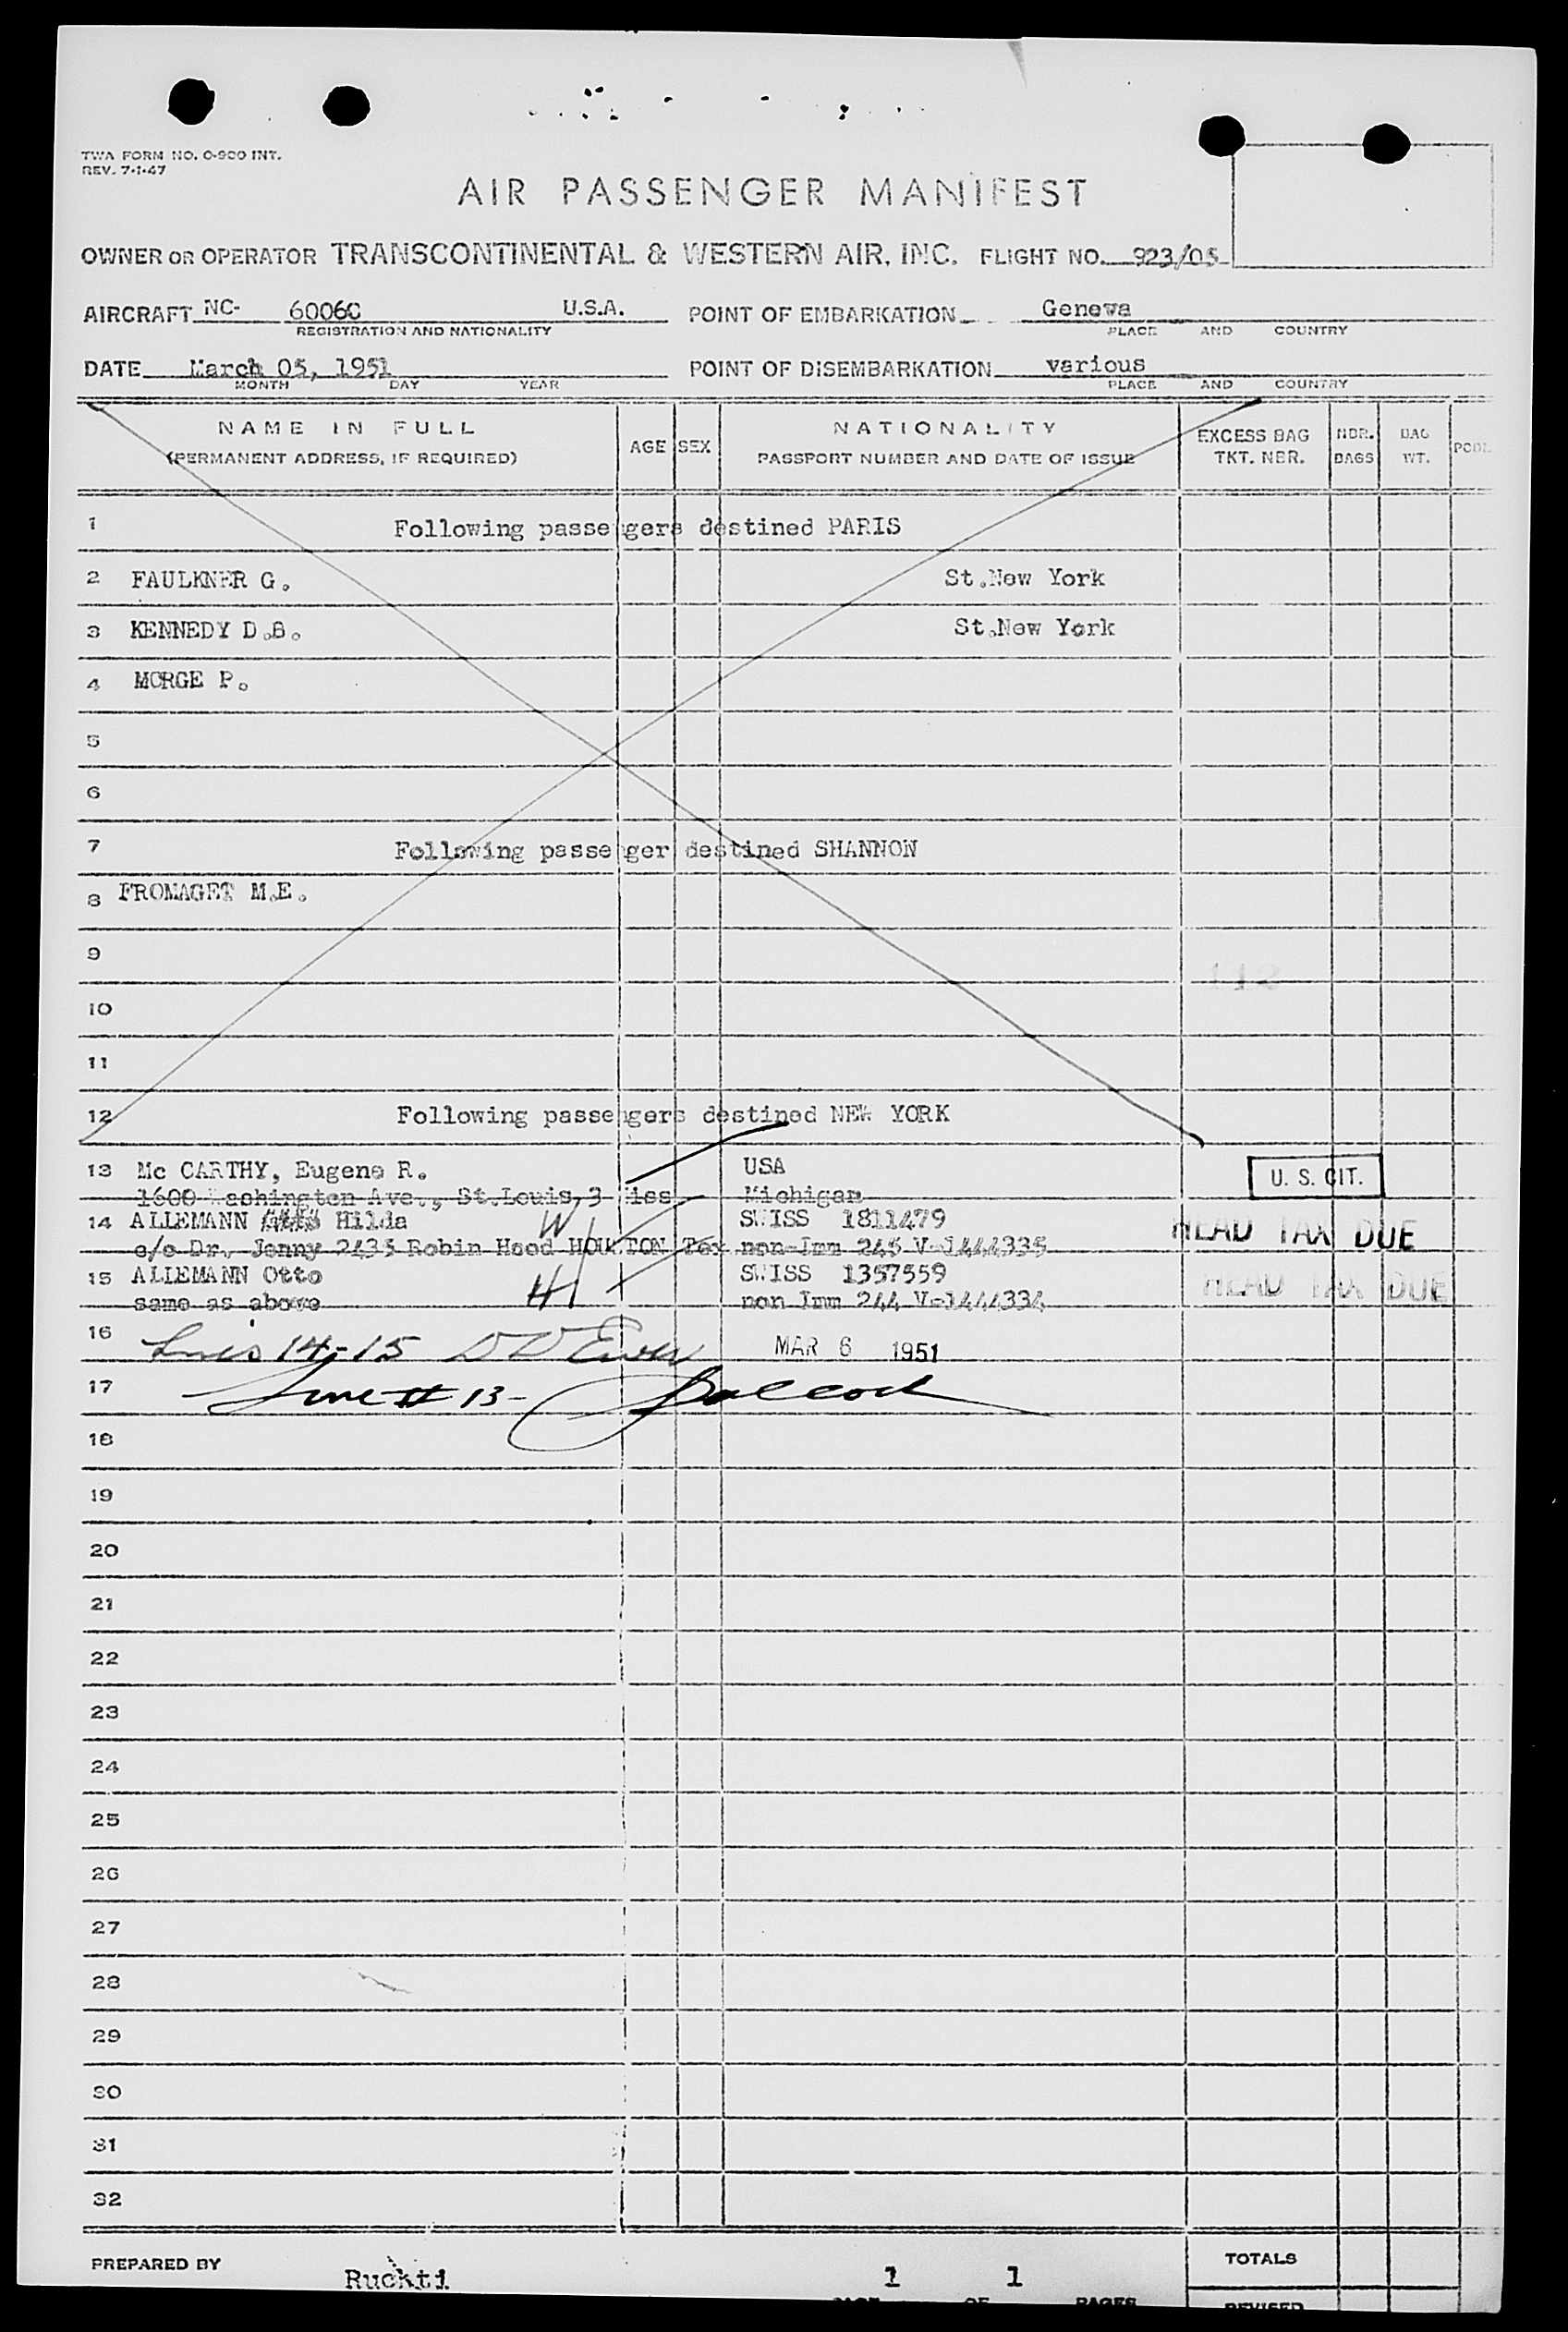 TWA FORM NO. O-900 INT.
REV. 7-1-47
AIR PASSENGER MANIFEST
OWNER OR OPERATOR TRANSCONTINENTAL & WESTERN AIR, INC. FLIGHT NO. 923/05
AIRCRAFT NC- 6006C U.S.A. POINT OF EMBARKATION Geneva
REGISTRATION AND NATIONALITY PLACE AND COUNTRY
DATE March 05, 1951 POINT OF DISEMBARKATION various
MONTH DAY YEAR PLACE AND COUNTRY
NAME IN FULL AGE SEX NATIONALITY EXCESS BAG NBR. BAG
(PERMANENT ADDRESS, IF REQUIRED) PASSPORT NUMBER AND DATE OF ISSUE TKT. NBR. BAGS WT.
1 Following passengers destined PARIS
2 FAULKNER G. St.New York
3 KENNEDY D.B. St.New York
4 MORGE P.
5
6
7 Following passenger destined SHANNON
8 FROMAGET M.E.
9
112
10
11
12 Following passengers destined NEW YORK
13 Mc CARTHY, Eugene R. USA U. S. CIT.
1600 Washington Ave., St.Louis,3 Michigan
14 ALLEMANN Hilda SWISS 1811479 HEAD TAX DUE
c/o Dr. Jenny 2435 Robin Hood HOUSTON Tex non-Imm 245 V-1444335
15 ALLEMANN Otto SWISS 1357559 HEAD TAX DUE
same as above non Imm 244 V-1444334
16 Lines 14-15 MAR 6 1951
17 Line # 13-
18
19
20
21
22
23
24
25
26
27
28
29
30
31
32
PREPARED BY Ruckti 1 1 TOTALS
PAGE OF PAGES REVISED